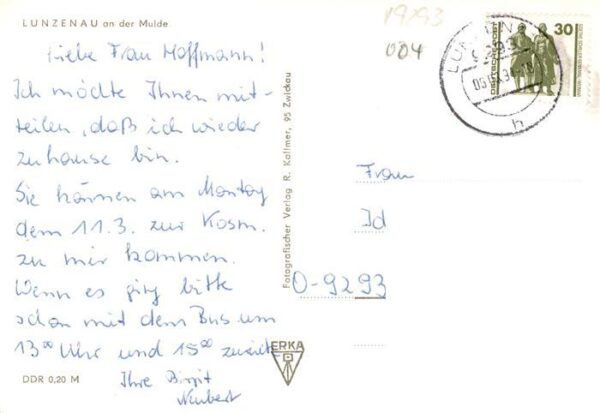 LUNZENAU an der Mulde
Liebe Frau Hoffmann!
Ich möchte Ihnen mit-
teilen, daß ich wieder
zuhause bin.
Sie können am Montag
dem 11.3. zur Kosm.
zu mir kommen.
Wenn es ging bitte
schon mit dem Bus um
13⁰⁰ Uhr und 15⁰⁰ zurück
Ihre Birgit
Neubert
DDR 0,20 M
Fotografischer Verlag R. Kallmer, 95 Zwickau
ERKA
19/93
004
30
DEUTSCHE POST
9293
h
Frau
Id
O-9293